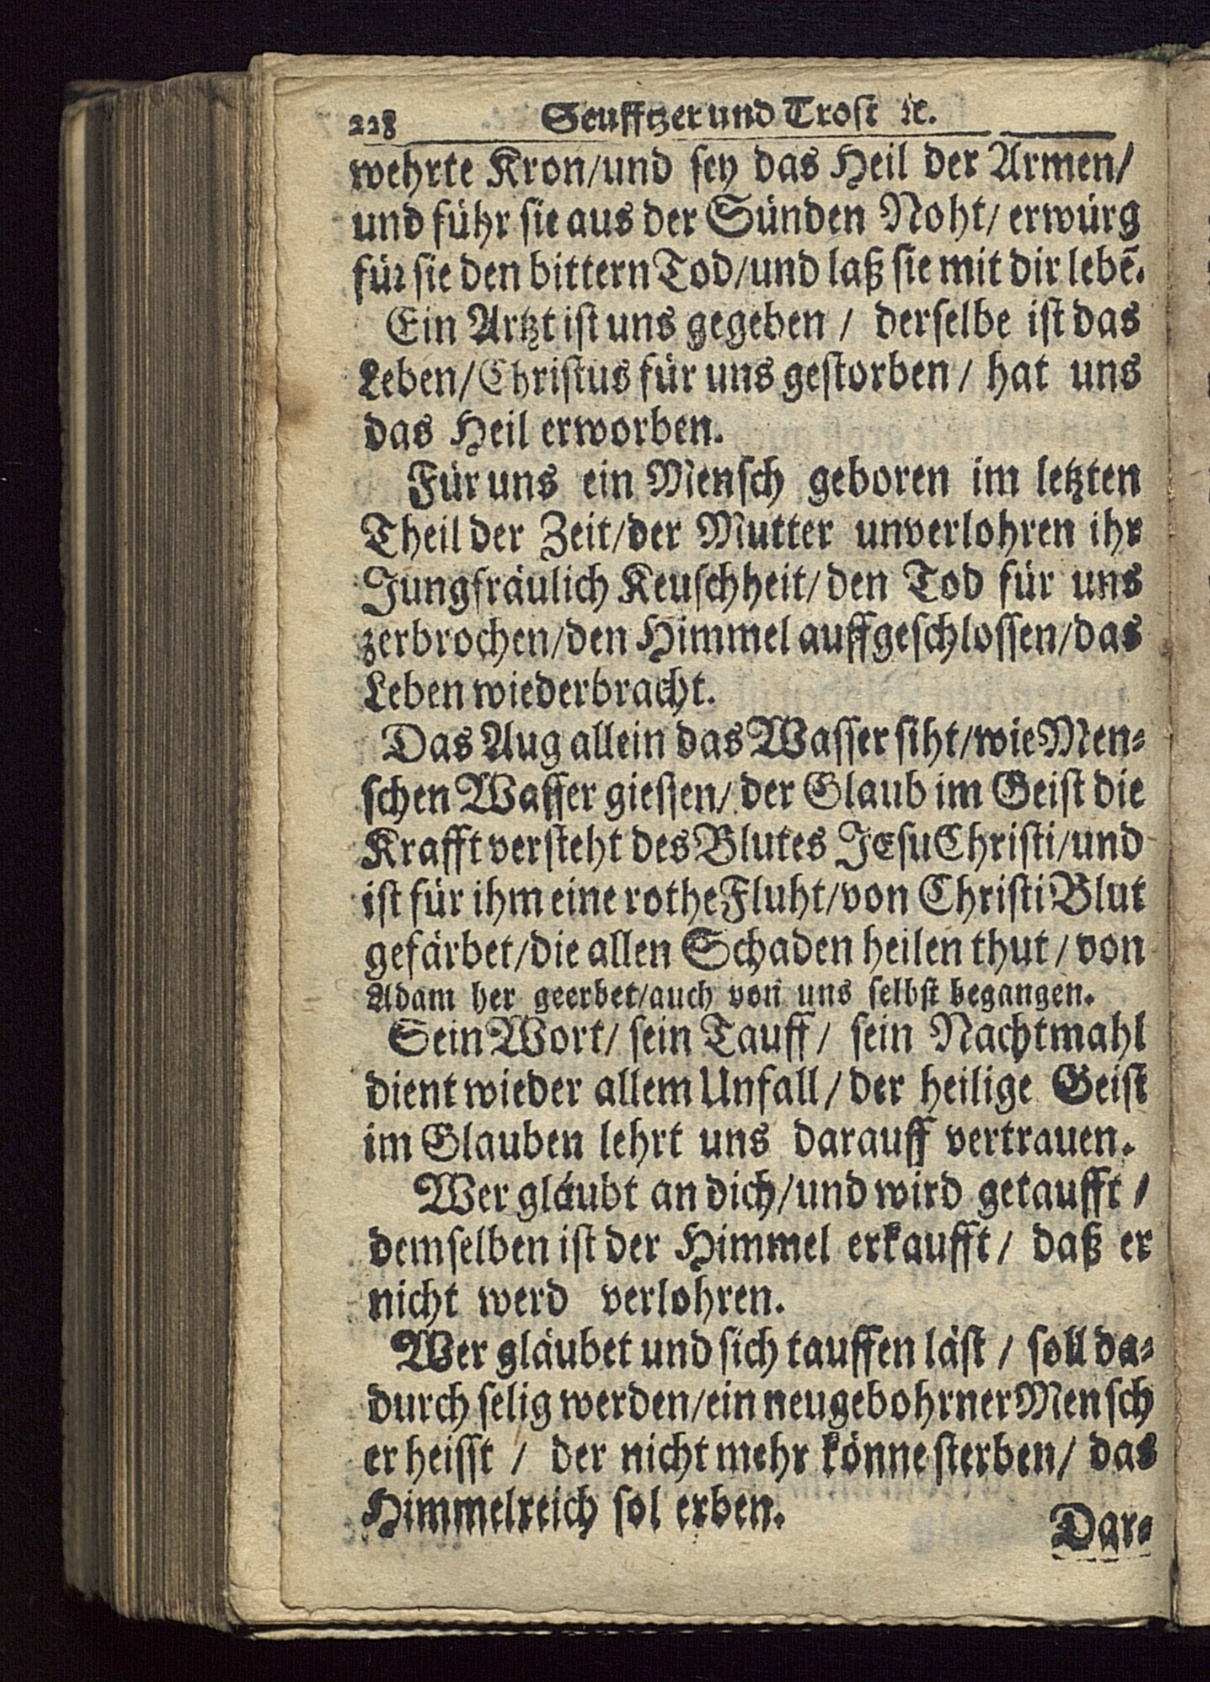 228 Seufftzer und Trost ꝛc.
wehrte Kron/und sey das Heil der Armen/
und führ sie aus der Sünden Noht/ erwürg
für sie den bittern Tod/und laß sie mit dir lebē.
Ein Artzt ist uns gegeben / derselbe ist das
Leben/Christus für uns gestorben / hat uns
das Heil erworben.
Für uns ein Mensch geboren im letzten
Theil der Zeit/der Mutter unverlohren ihr
Jungfräulich Keuschheit/den Tod für uns
zerbrochen/den Himmel auffgeschlossen/das
Leben wiederbracht.
Das Aug allein das Wasser siht/wie Men-
schen Wasser giessen/ der Glaub im Geist die
Krafft versteht des Blutes JEsu Christi/und
ist für ihm eine rothe Fluht/von Christi Blut
gefärbet/die allen Schaden heilen thut / von
Adam her geerbet/auch von uns selbst begangen.
Sein Wort/ sein Tauff / sein Nachtmahl
dient wieder allem Unfall / der heilige Geist
im Glauben lehrt uns darauff vertrauen.
Wer gläubt an dich/und wird getaufft /
demselben ist der Himmel erkaufft / daß er
nicht werd verlohren.
Wer gläubet und sich tauffen läst / soll da-
durch selig werden/ein neugebohrner Mensch
er heisst / der nicht mehr könne sterben/ das
Himmelreich sol erben.
Dar-